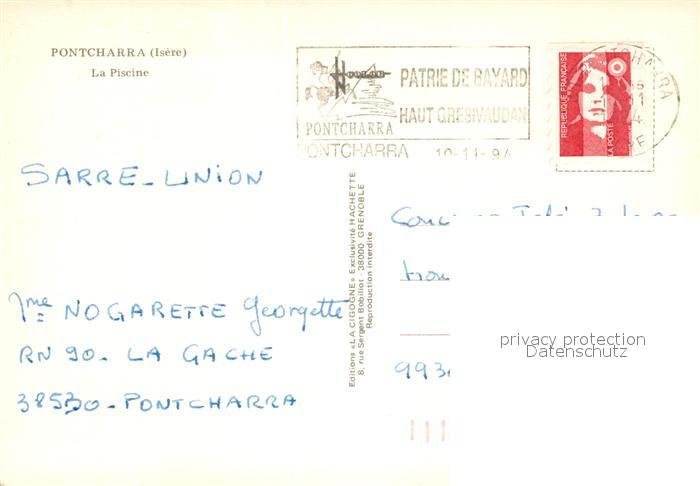 PONTCHARRA (Isère)
La Piscine
PONTCHARRA
PATRIE DE BAYARD
HAUT GRESIVAUDAN
PONTCHARRA 10-11-94
REPUBLIQUE FRANÇAISE
LA POSTE
PONTCHARRA
SARRE-UNION
Mme NOGARETTE Georgette
RN 90 - LA GACHE
38530 - PONTCHARRA
Editions «LA CIGOGNE» Exclusivité HACHETTE
8, rue Sergent Bobillot - 38000 GRENOBLE
Reproduction interdite
privacy protection
Datenschutz